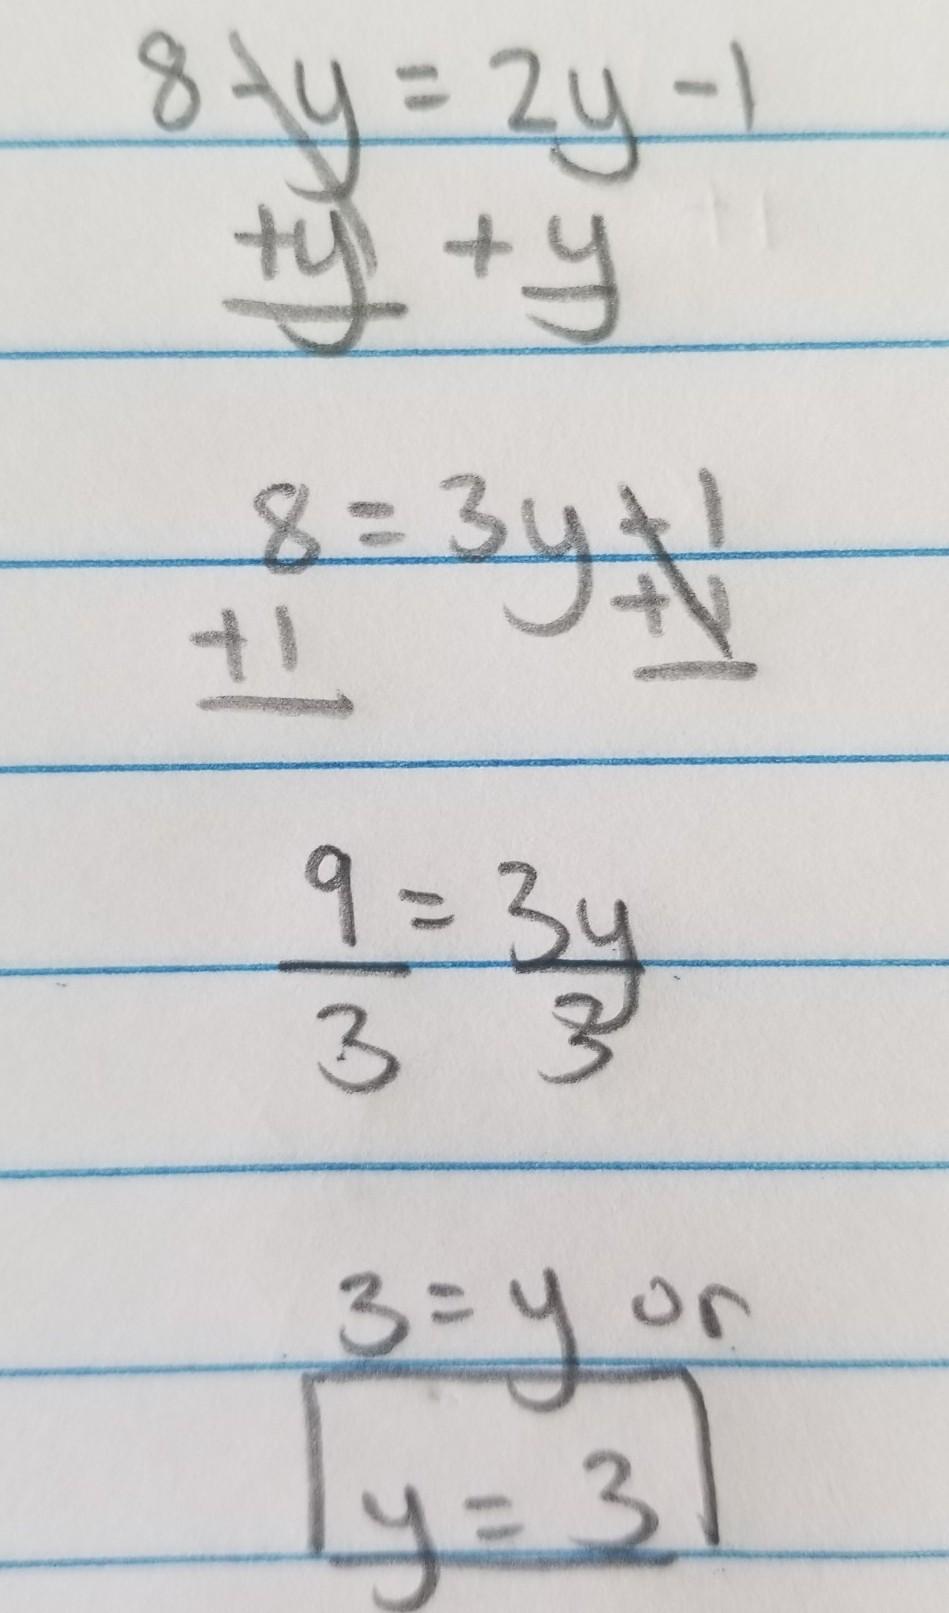 8 - y = 2y - 1
+y + y
8 = 3y - 1
+1 +1
9 = 3y
3 3
3 = y or
y = 3